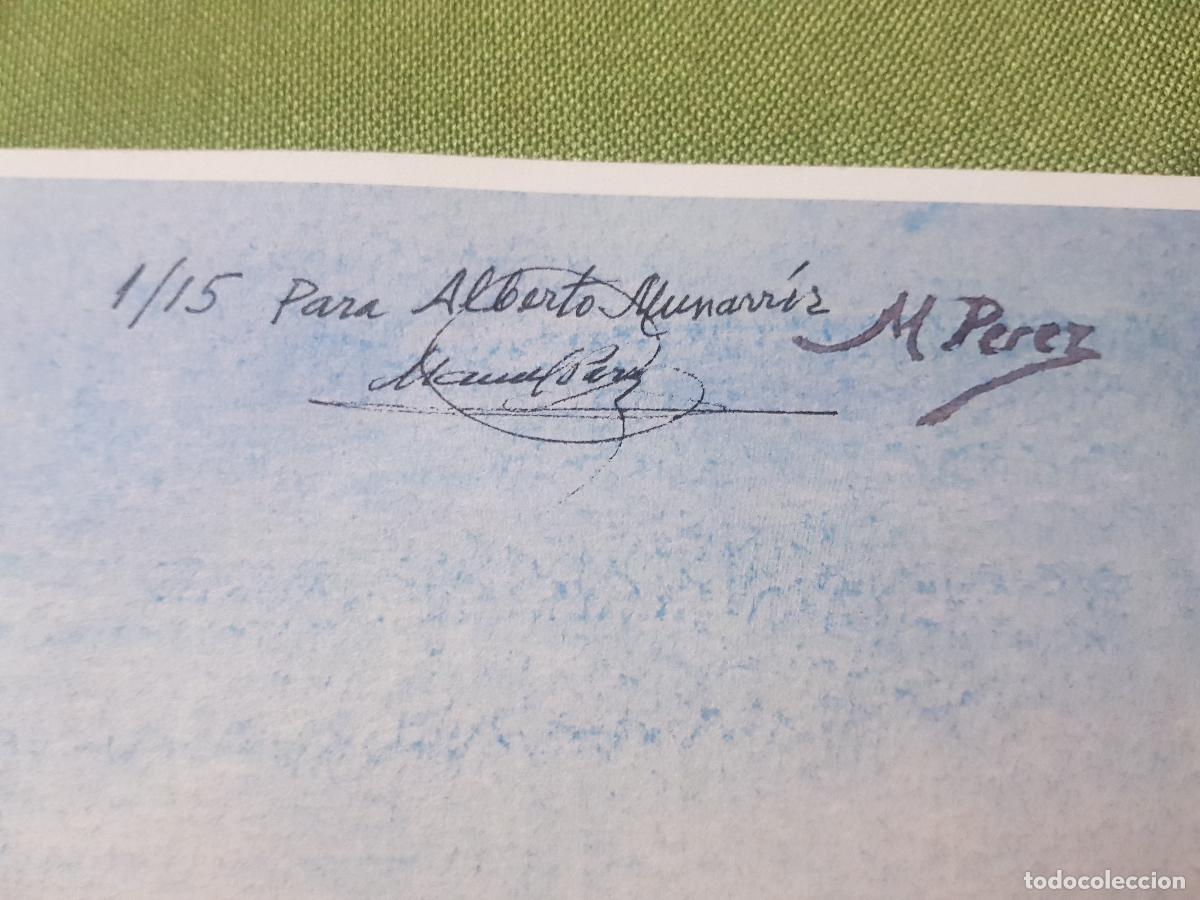 1/15 Para Alberto Munárriz M Perez
Manuel Perez
todocoleccion